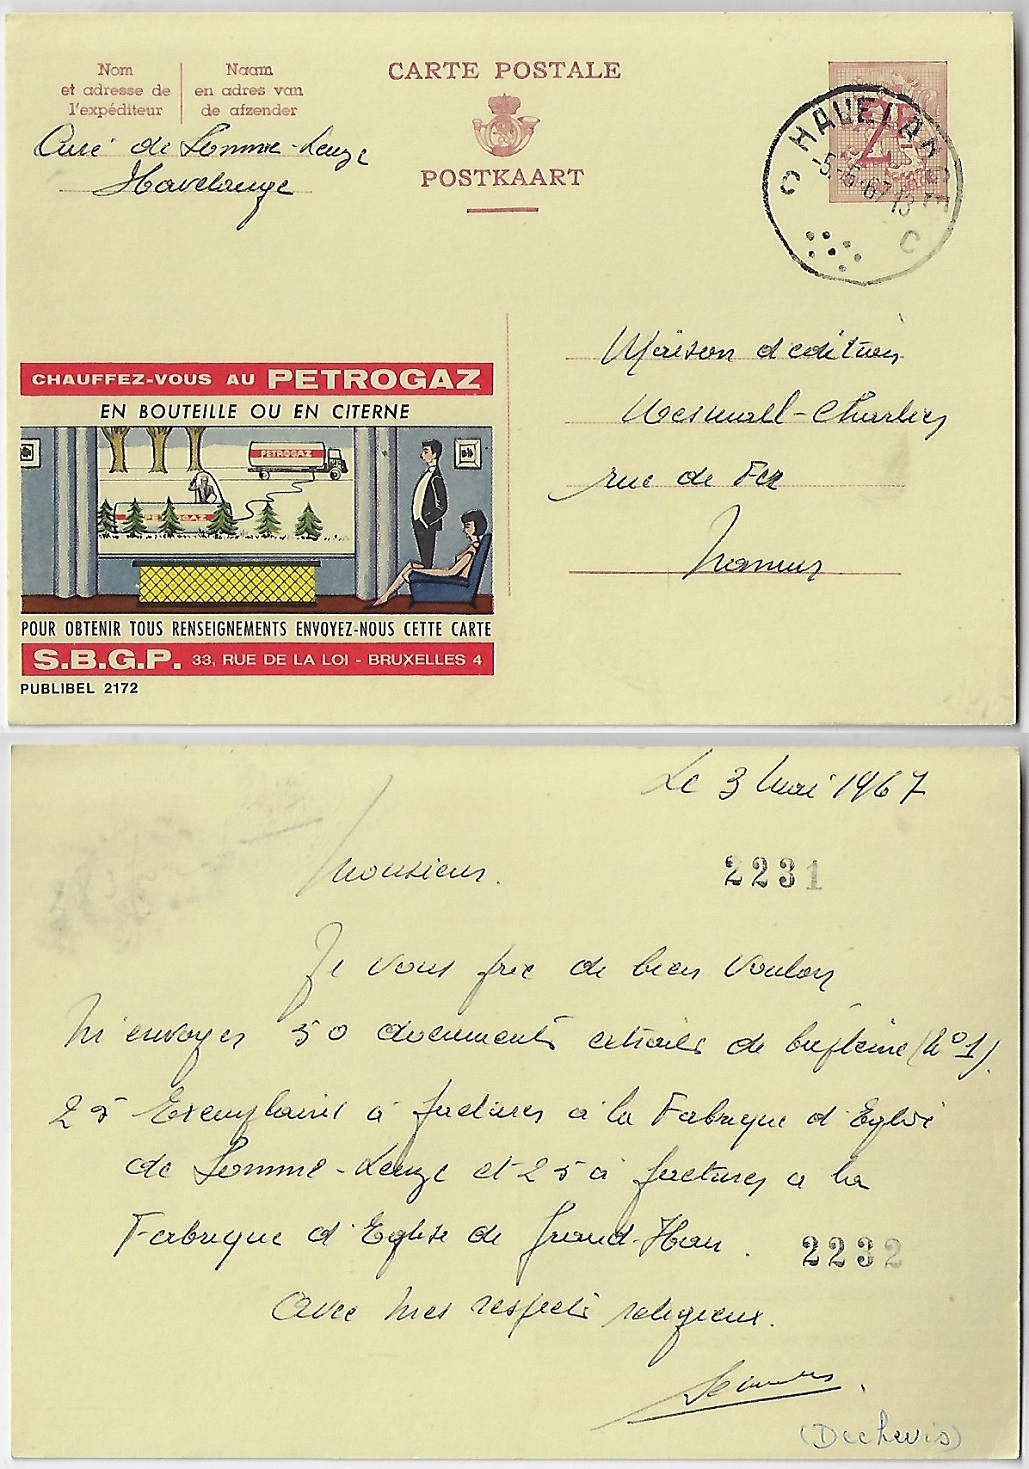 Nom
et adresse de
l'expéditeur
Naam
en adres van
de afzender
CARTE POSTALE
POSTKAART
Curé de Somme-Leuze
Havelange
2F
HAVELANGE
-5.-5-67 13
C C
Maison d'édition
Wesmael-Charlier
rue de Fer
Namur
CHAUFFEZ-VOUS AU PETROGAZ
EN BOUTEILLE OU EN CITERNE
PETROGAZ
PETROGAZ
POUR OBTENIR TOUS RENSEIGNEMENTS ENVOYEZ-NOUS CETTE CARTE
S.B.G.P. 33, RUE DE LA LOI - BRUXELLES 4
PUBLIBEL 2172
Le 3 Mai 1967
Monsieur.
2231
Je vous prie de bien vouloir
m'envoyer 50 documents extraits de baptême (No 1).
25 Exemplaires à facturer à la Fabrique d'Eglise
de Somme-Leuze et 25 à facturer a la
Fabrique d'Eglise de Grand-Han.
2232
Avec mes respects religieux.
(Dechevis)